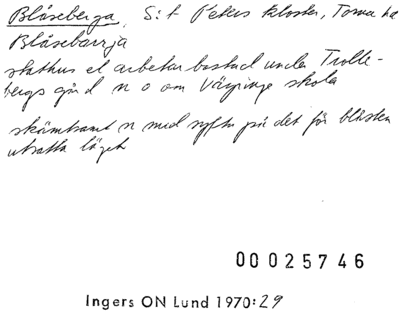 Blåseberga, S:t Peters kloster, Torna hd
Blåsebärrja
stathus el arbetarbostad under Trolle-
bergs gård n o om Värpinge skola
skämtsamt n med syftn på det för blåsten
utsatta läget
00025746
Ingers ON Lund 1970:29